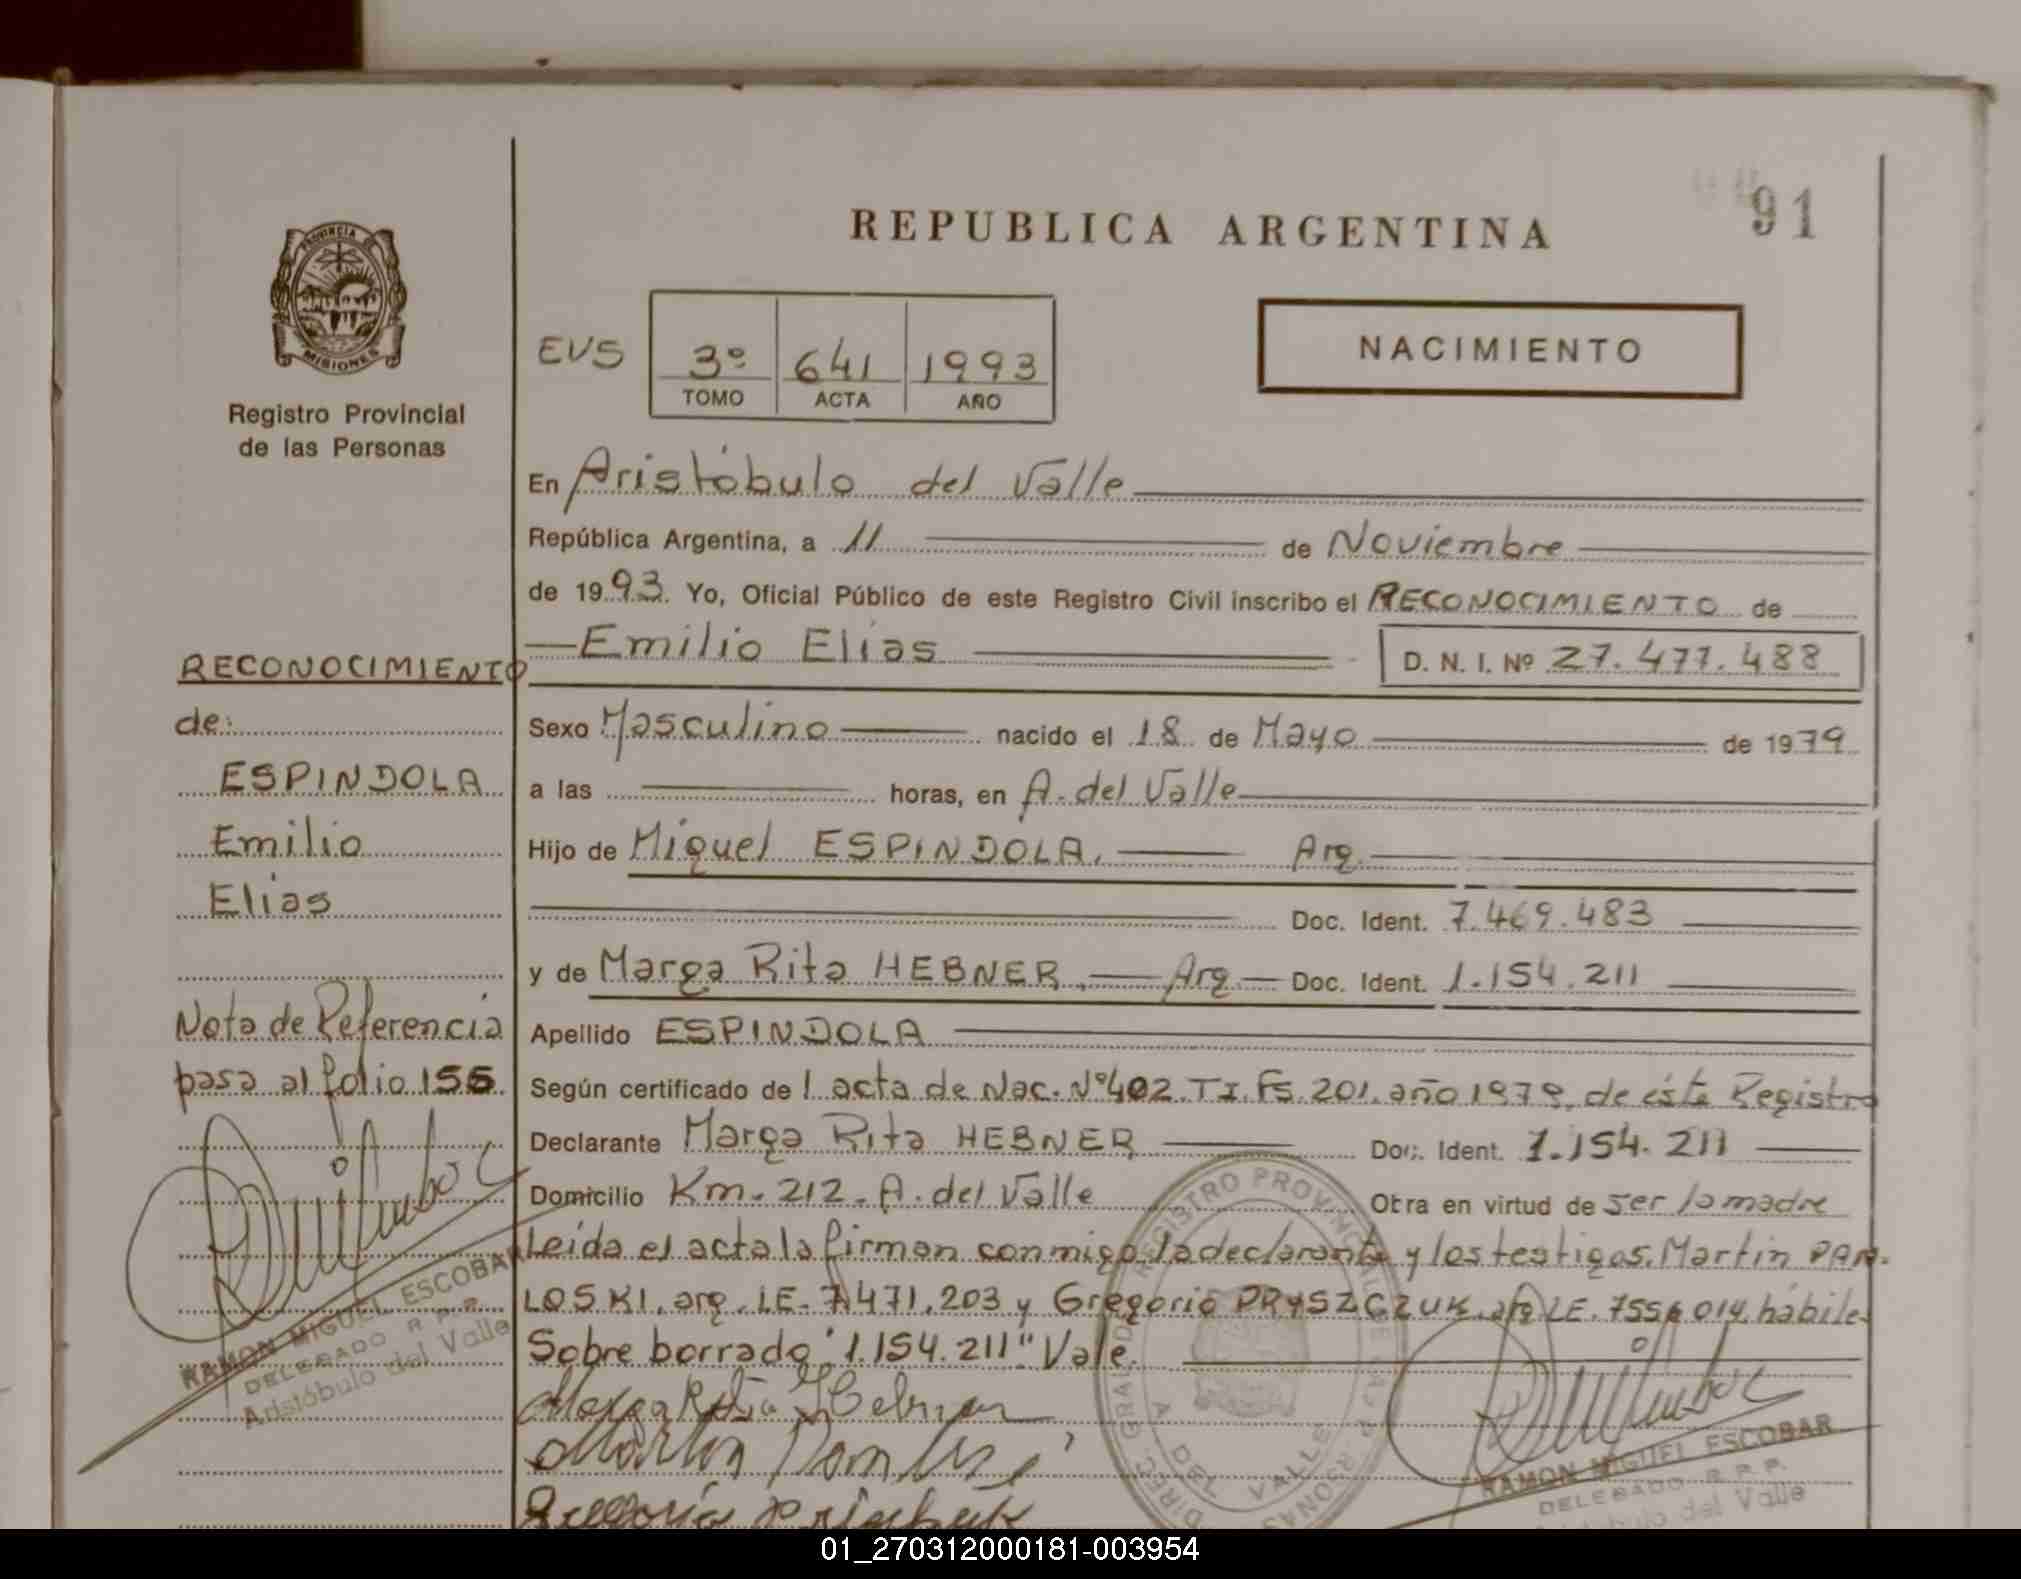 REPUBLICA ARGENTINA
91
PROVINCIA DE
MISIONES
Registro Provincial
de las Personas
EVS
3º 641 1993
TOMO ACTA AÑO
NACIMIENTO
En Aristóbulo del Valle
República Argentina, a 11 de Noviembre
de 1993. Yo, Oficial Público de este Registro Civil inscribo el RECONOCIMIENTO de
Emilio Elias D. N. I. Nº 27.477.488
Sexo Masculino nacido el 18 de Mayo de 1979
a las horas, en A. del Valle
Hijo de Miguel ESPINDOLA. Arg.
Doc. Ident. 7.469.483
y de Marga Rita HEBNER. Arg. Doc. Ident. 1.154.211
Apellido ESPINDOLA
Según certificado de 1 acta de Nac. Nº402. T I. Fs. 201. año 1979. de éste Registro
Declarante Marga Rita HEBNER Doc. Ident. 1.154.211
Domicilio Km. 212. A. del Valle Otra en virtud de ser la madre
Leída el acta la firman conmigo, la declarante y los testigos. Martin
LOSKI. arg. LE. 7.471.203 y Gregorio PRYSZCZUK. arg LE. 7556014. hábiles
Sobre borrado "1.154.211" Vale.
Marga Rita Hebner
Martin
RECONOCIMIENTO
de:
ESPINDOLA
Emilio
Elias
Nota de Referencia
pasa al folio 155.
RAMON MIGUEL ESCOBAR
DELEGADO R.P.P.
Aristóbulo del Valle
REGISTRO PROVINCIAL DE LAS PERSONAS
DIREC. GRAL. DEL
A. DEL VALLE
RAMON MIGUEL ESCOBAR
DELEGADO R.P.P.
del Valle
01_270312000181-003954